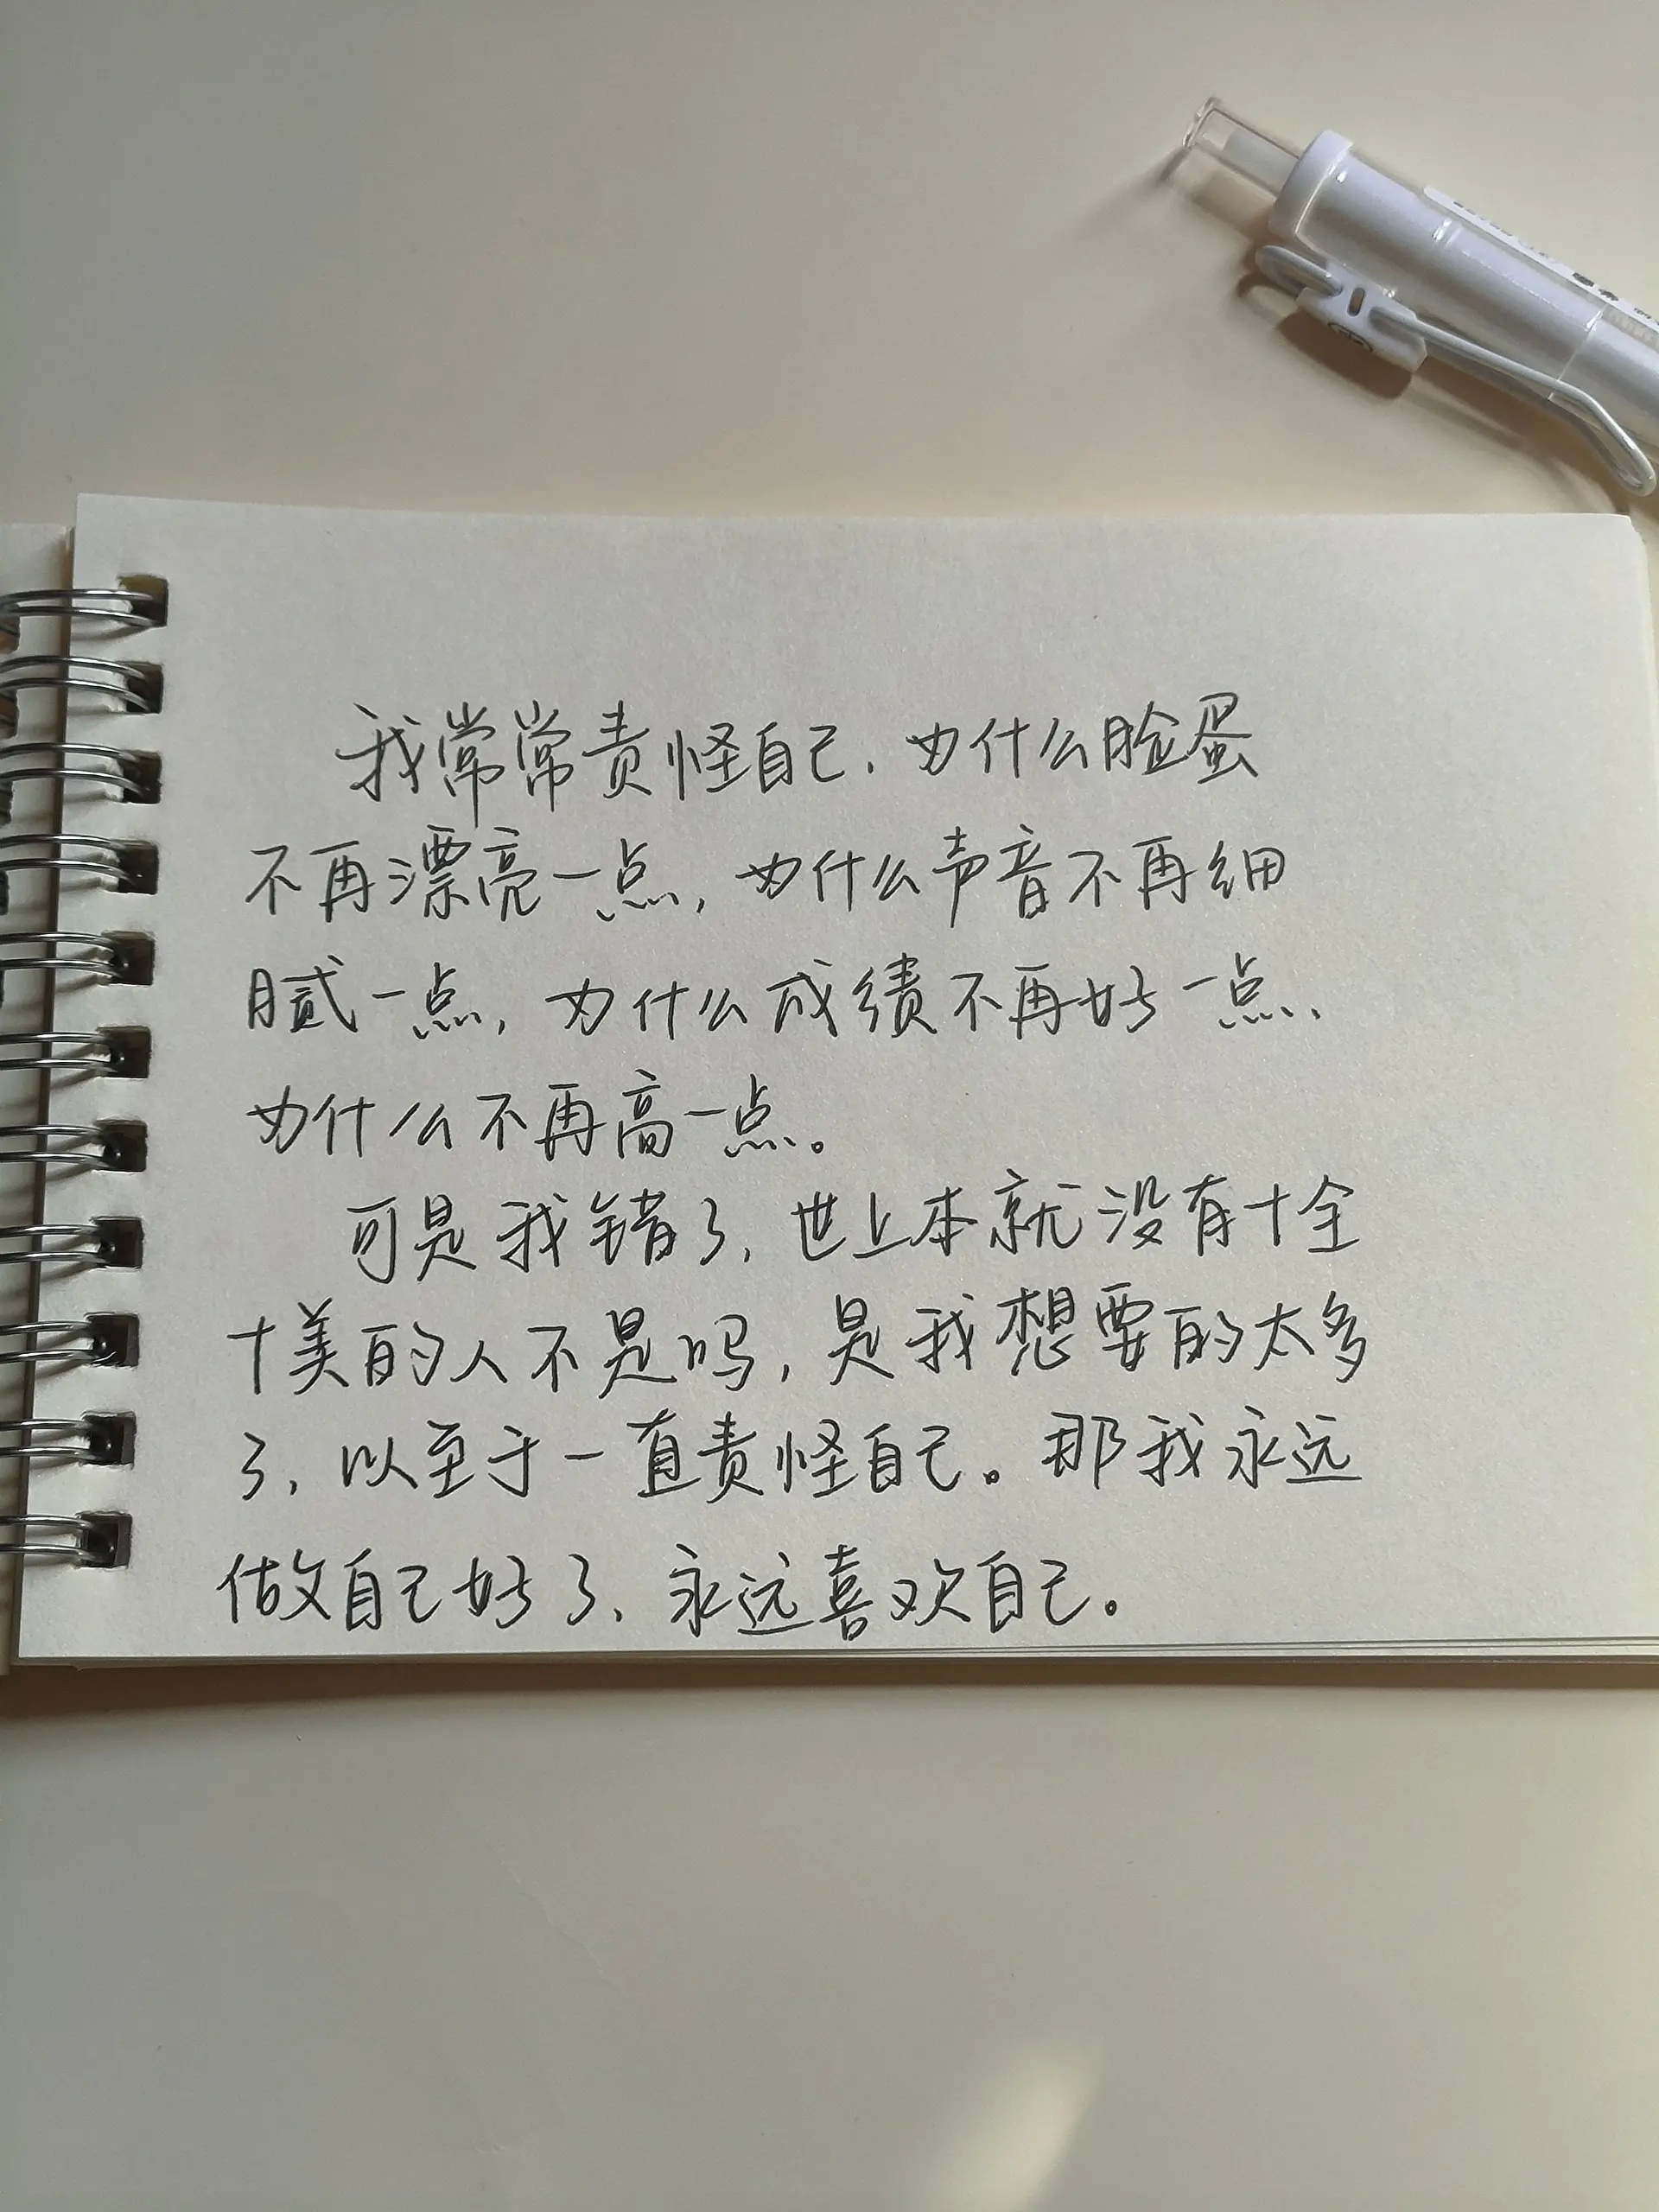 我常常责怪自己，为什么脸蛋
不再漂亮一点，为什么声音不再细
腻一点，为什么成绩不再好一点、
为什么不再高一点。
可是我错了，世上本就没有十全
十美的人不是吗，是我想要的太多
了，以至于一直责怪自己。那我永远
做自己好了、永远喜欢自己。